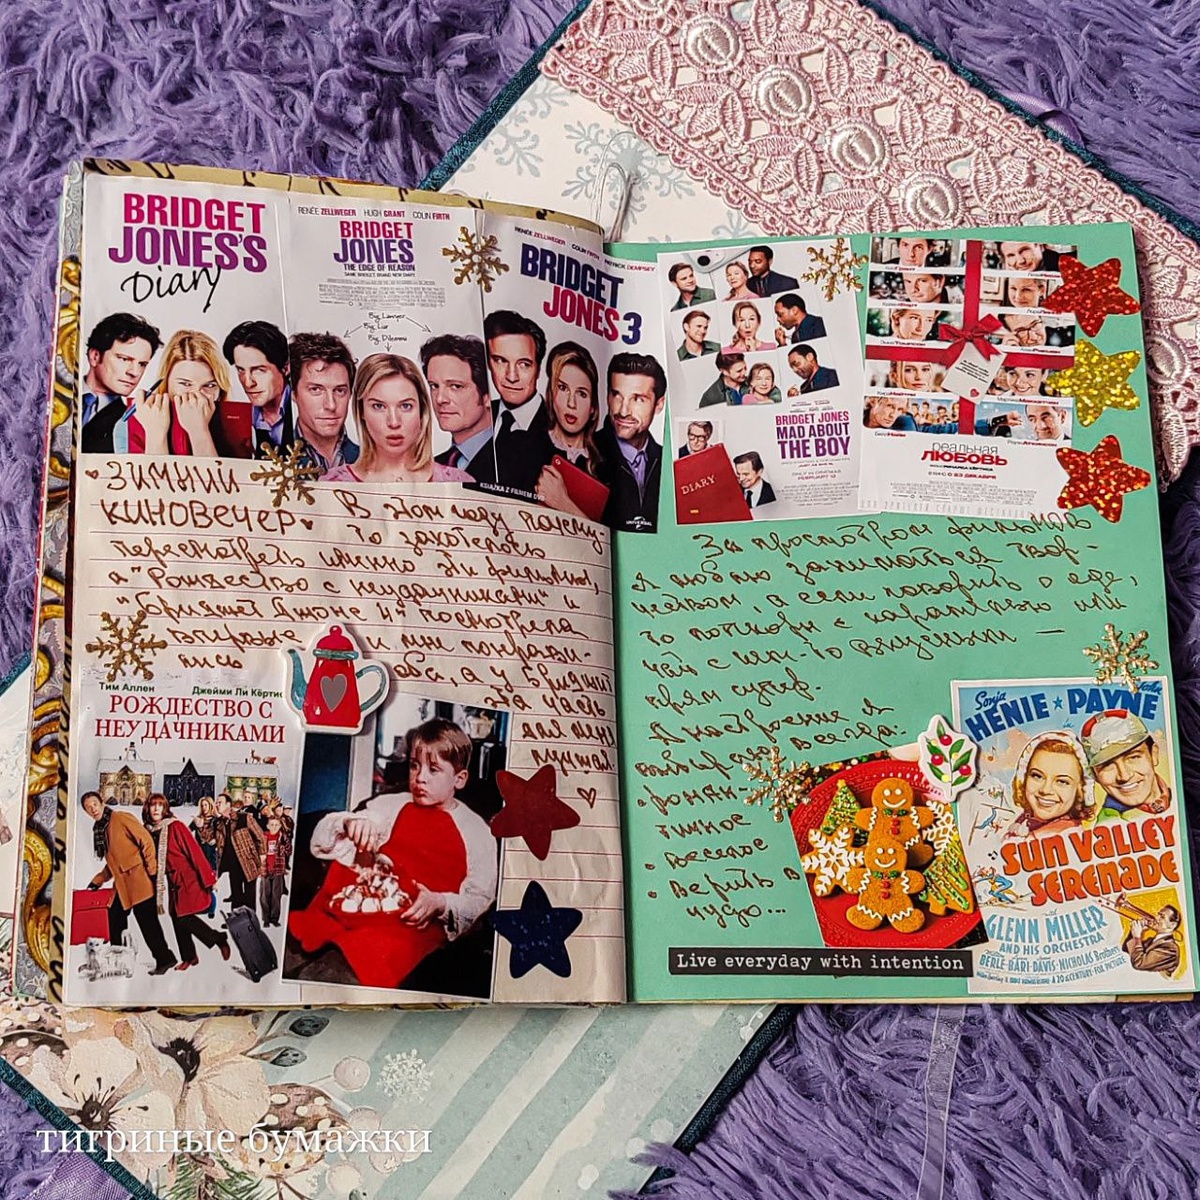 BRIDGET
JONES'S
Diary
RENÉE ZELLWEGER HUGH GRANT COLIN FIRTH
BRIDGET
JONES
THE EDGE OF REASON
SAME BRIDGET. BRAND NEW DIARY.
Big Lawyer
Big Liar
Big Dilemma
RENÉE ZELLWEGER COLIN FIRTH PATRICK DEMPSEY
BRIDGET
JONES 3
KSIĄŻKA Z FILMEM DVD
UNIVERSAL
ЗИМНИЙ
КИНОВЕЧЕР
В этом году почему-
то захотелось
пересмотреть именно эти фильмы,
а "Рождество с неудачниками" и
"Бриджет Джонс 4" посмотрела
впервые и мне понрави-
лись оба, а у Бриджит
эта часть
для меня
лучшая.
Тим Аллен Джейми Ли Кёртис
РОЖДЕСТВО С
НЕУДАЧНИКАМИ
BRIDGET JONES
MAD ABOUT
THE BOY
FEBRUARY
DIARY
реальная
ЛЮБОВЬ
В КИНО С 23 ДЕКАБРЯ
За просмотром фильмов
я люблю заниматься твор-
чеством а если говорить о еде,
то попкорн с карамелью или
чай с чем-то вкусным —
прям супер.
А настроение я
выбираю всегда:
• роман-
тичное
• веселое
• верить в
чудо...
Sonja John
HENIE ★ PAYNE
in
SUN VALLEY
SERENADE
with
GLENN MILLER
AND HIS ORCHESTRA
BERLE·BARI·DAVIS·NICHOLAS Brothers
A 20th CENTURY-FOX PICTURE
Live everyday with intention
тигриные бумажки